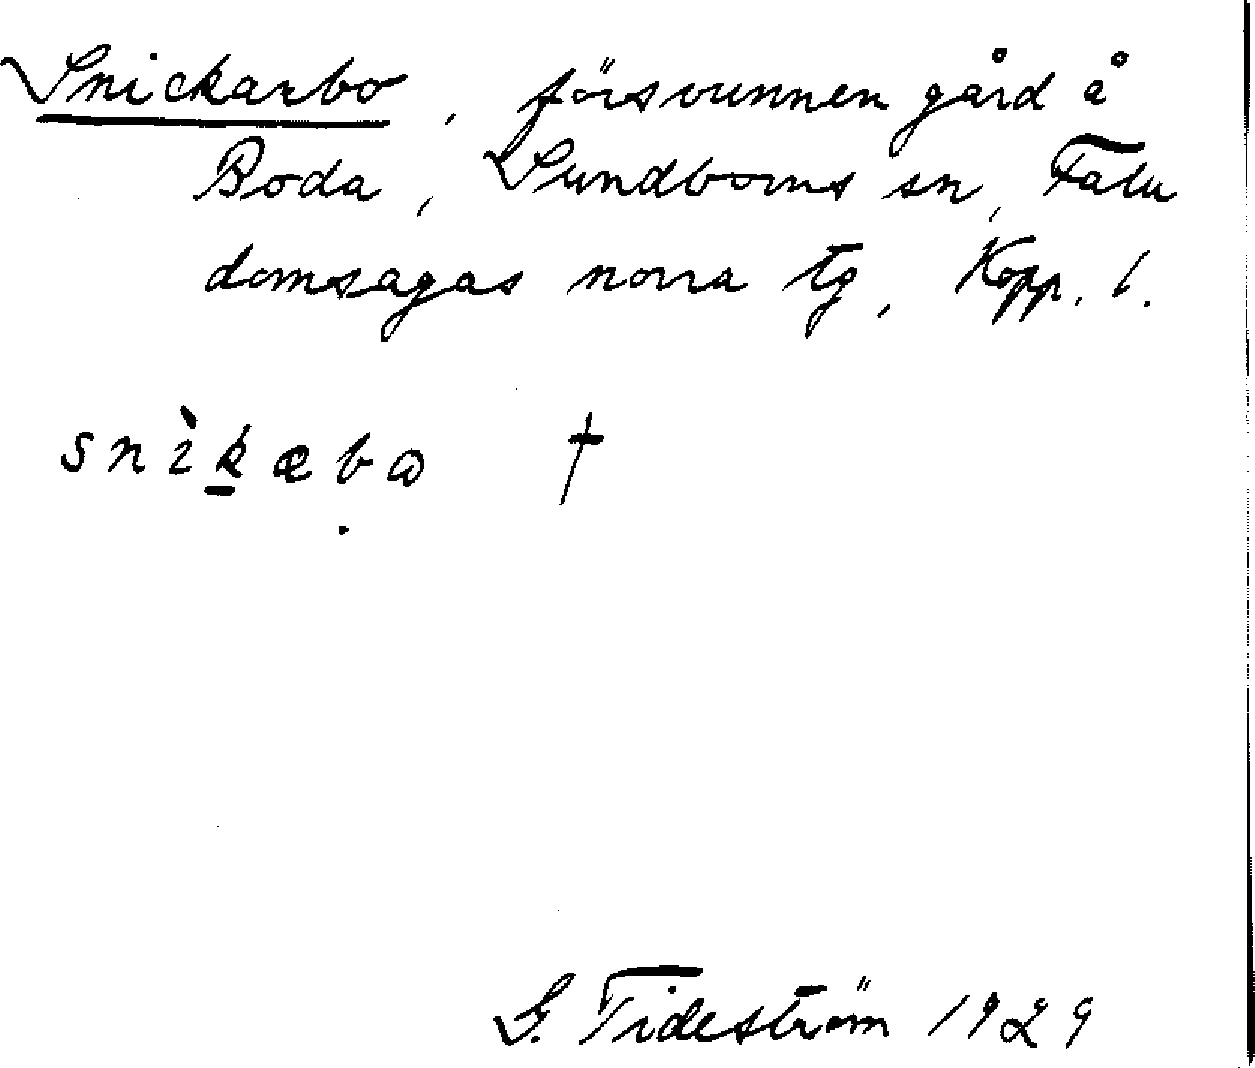 Snickarbo, försvunnen gård å
Boda, Sundborns sn, Falu
domsagas norra tg, Kopp. l.
snìkæbo †
G. Tideström 1929